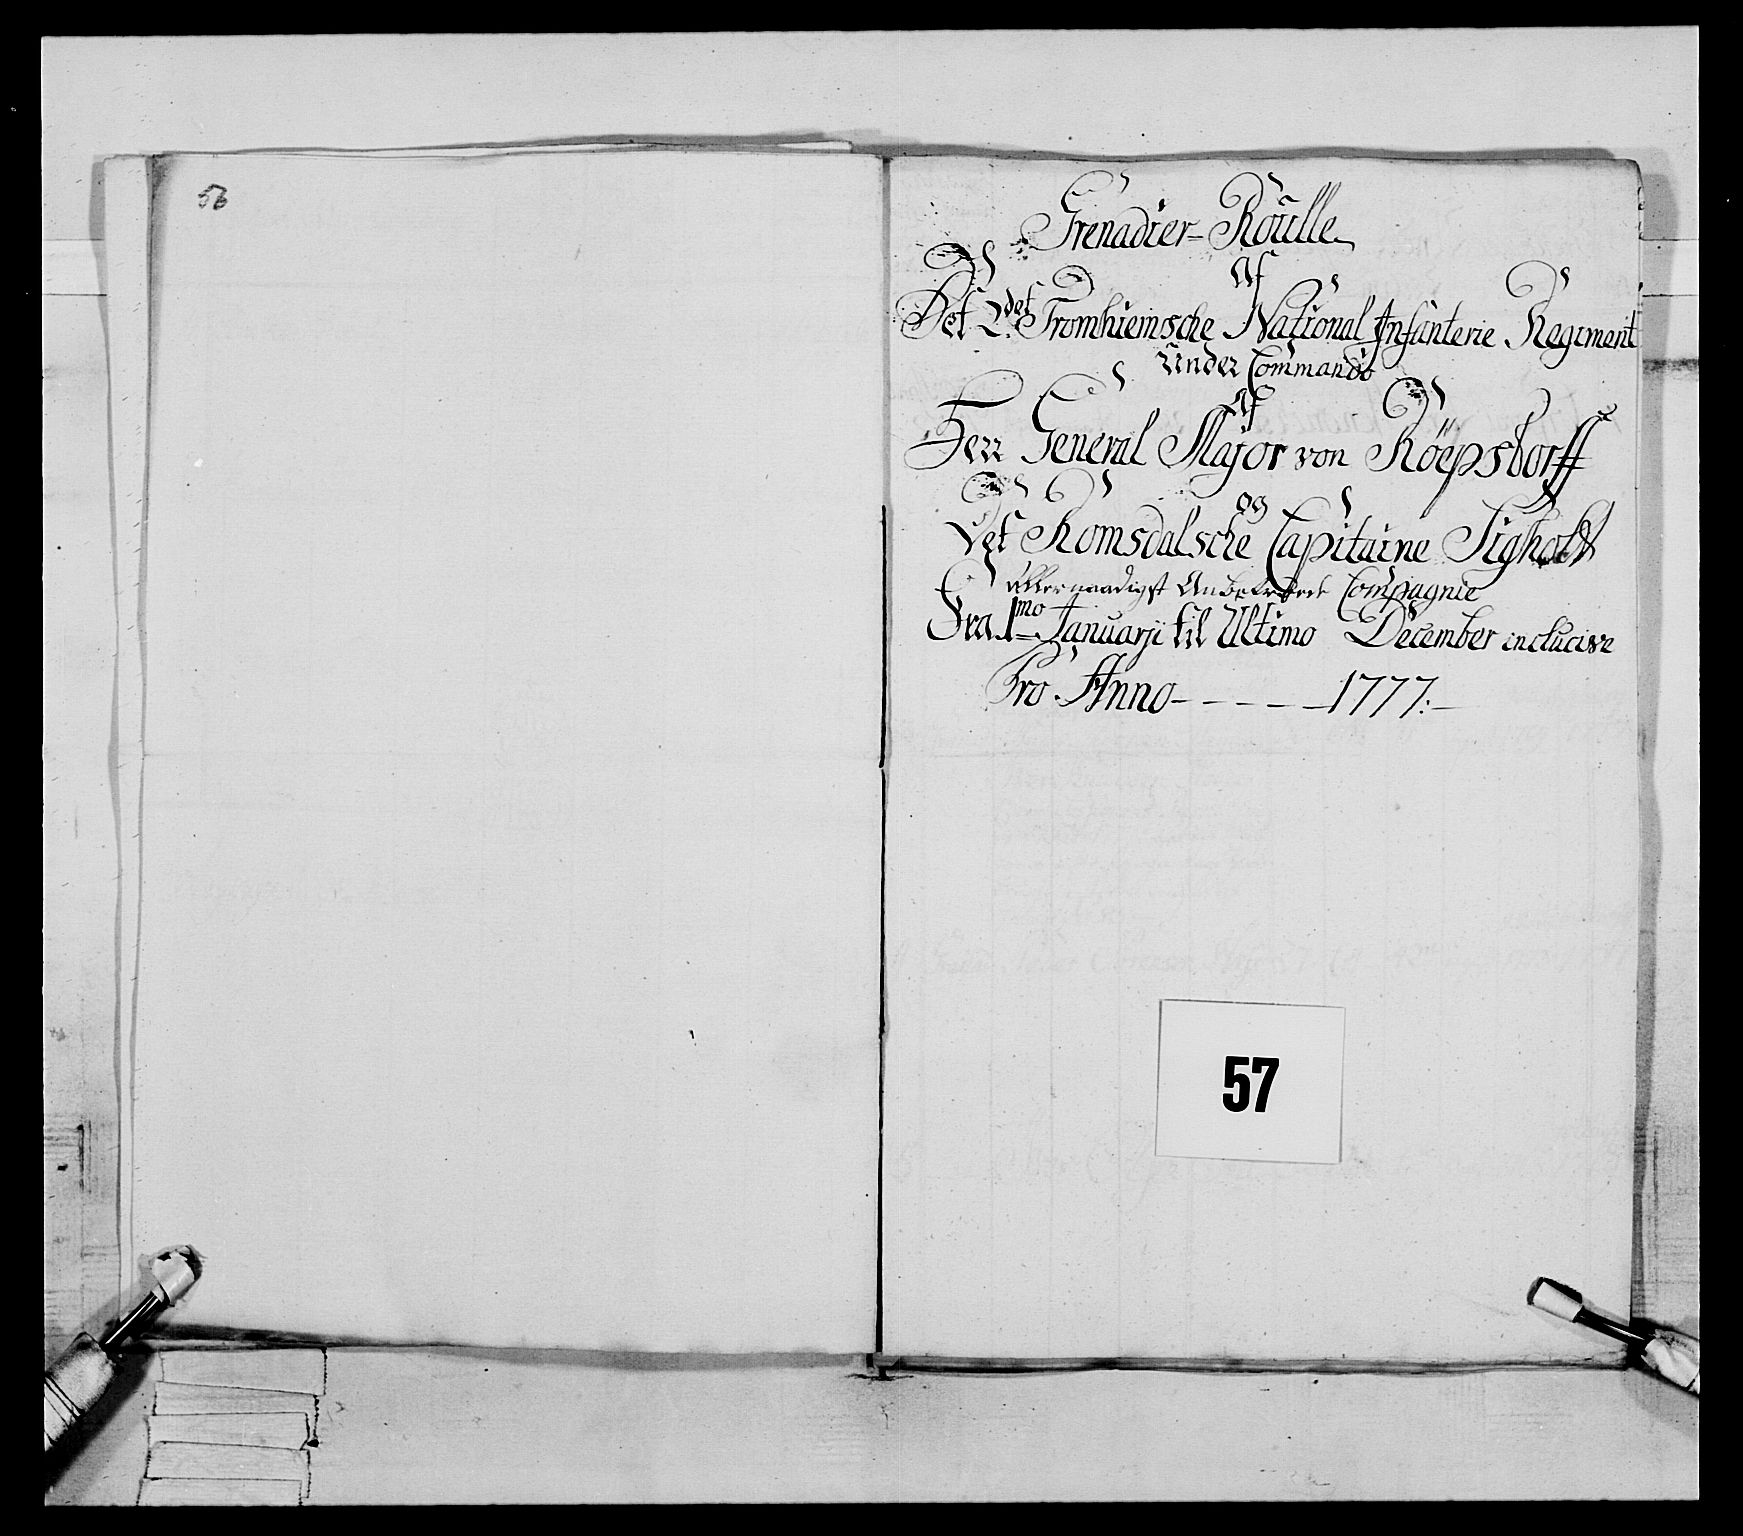 56
Grenadier-Roulle
Af
Det 2det Tromhiemsche National Infanterie Regiment
Under Commando
Af
Herr General Major von Röepsdorff
og
Det Romsdalsche Capitaine Sigholt
allernaadigst Anbetroede Compagnie
Fra 1mo Januarji til Ultimo December inclucive
Pro Anno - - - - - 1777:-
57